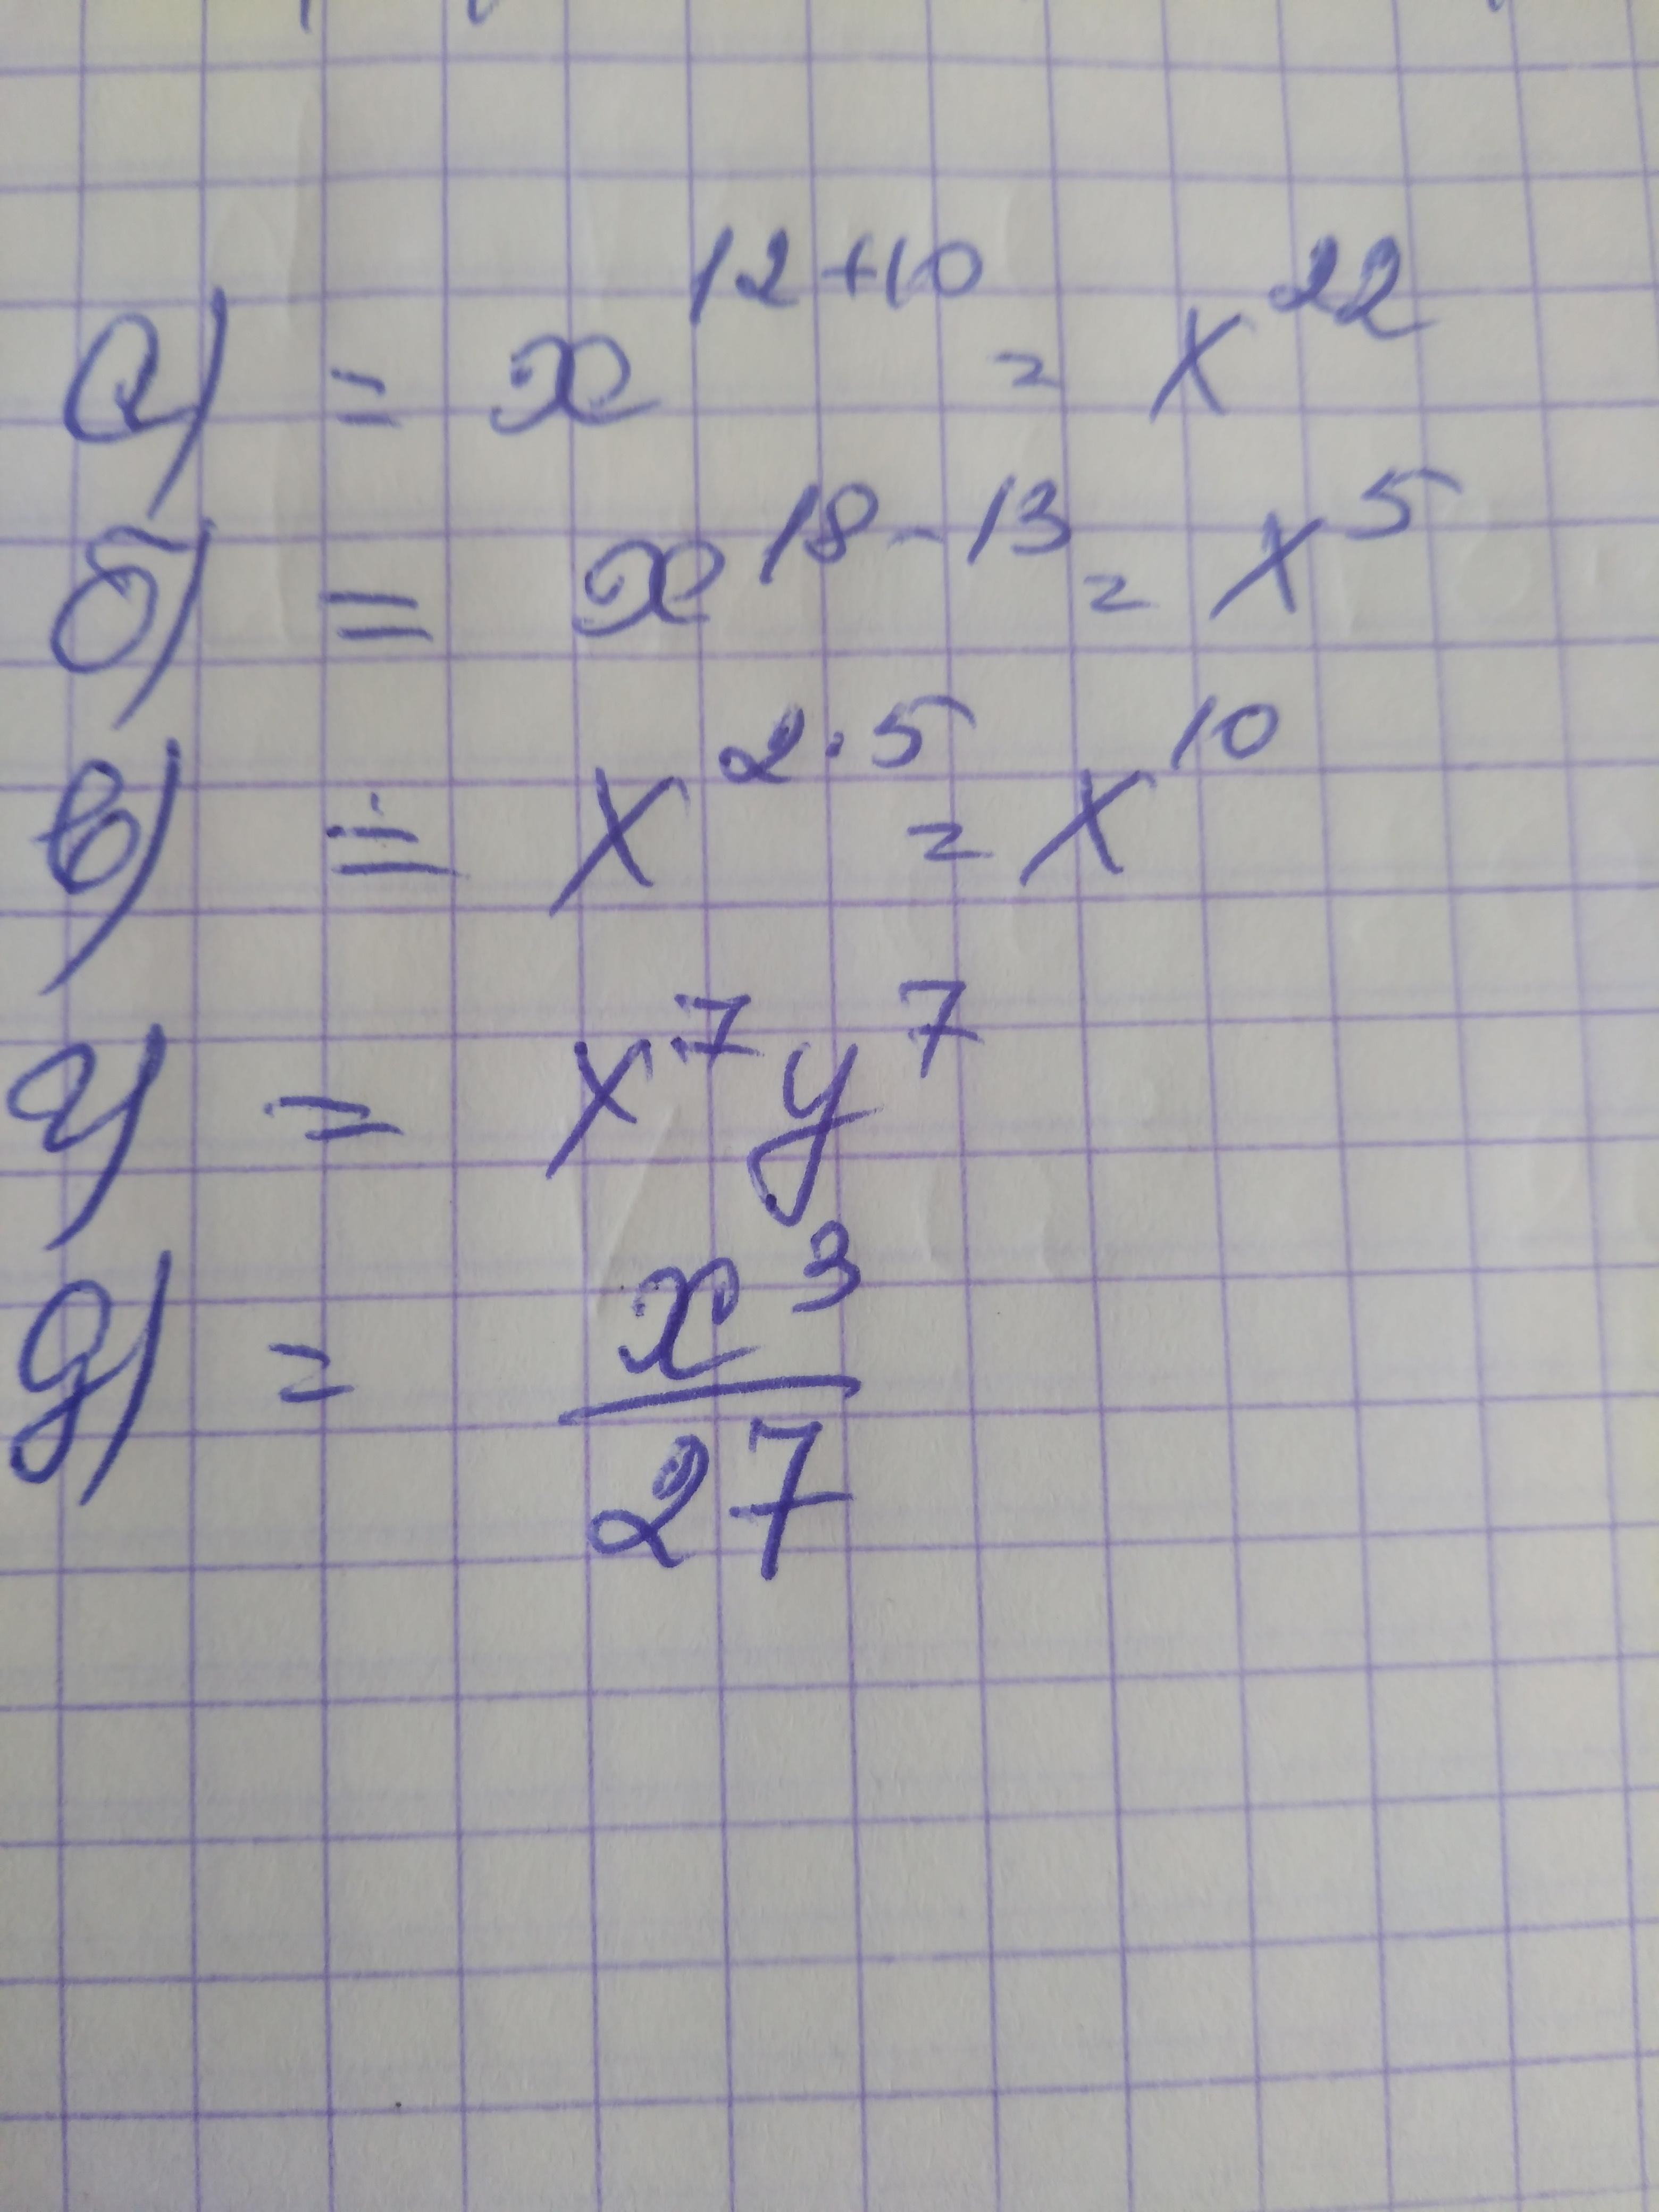 а) = x^{12+10} = x^{22}
б) = x^{18-13} = x^{5}
в) = x^{2·5} = x^{10}
г) = x^{7}y^{7}
д) = \frac{x^{3}}{27}